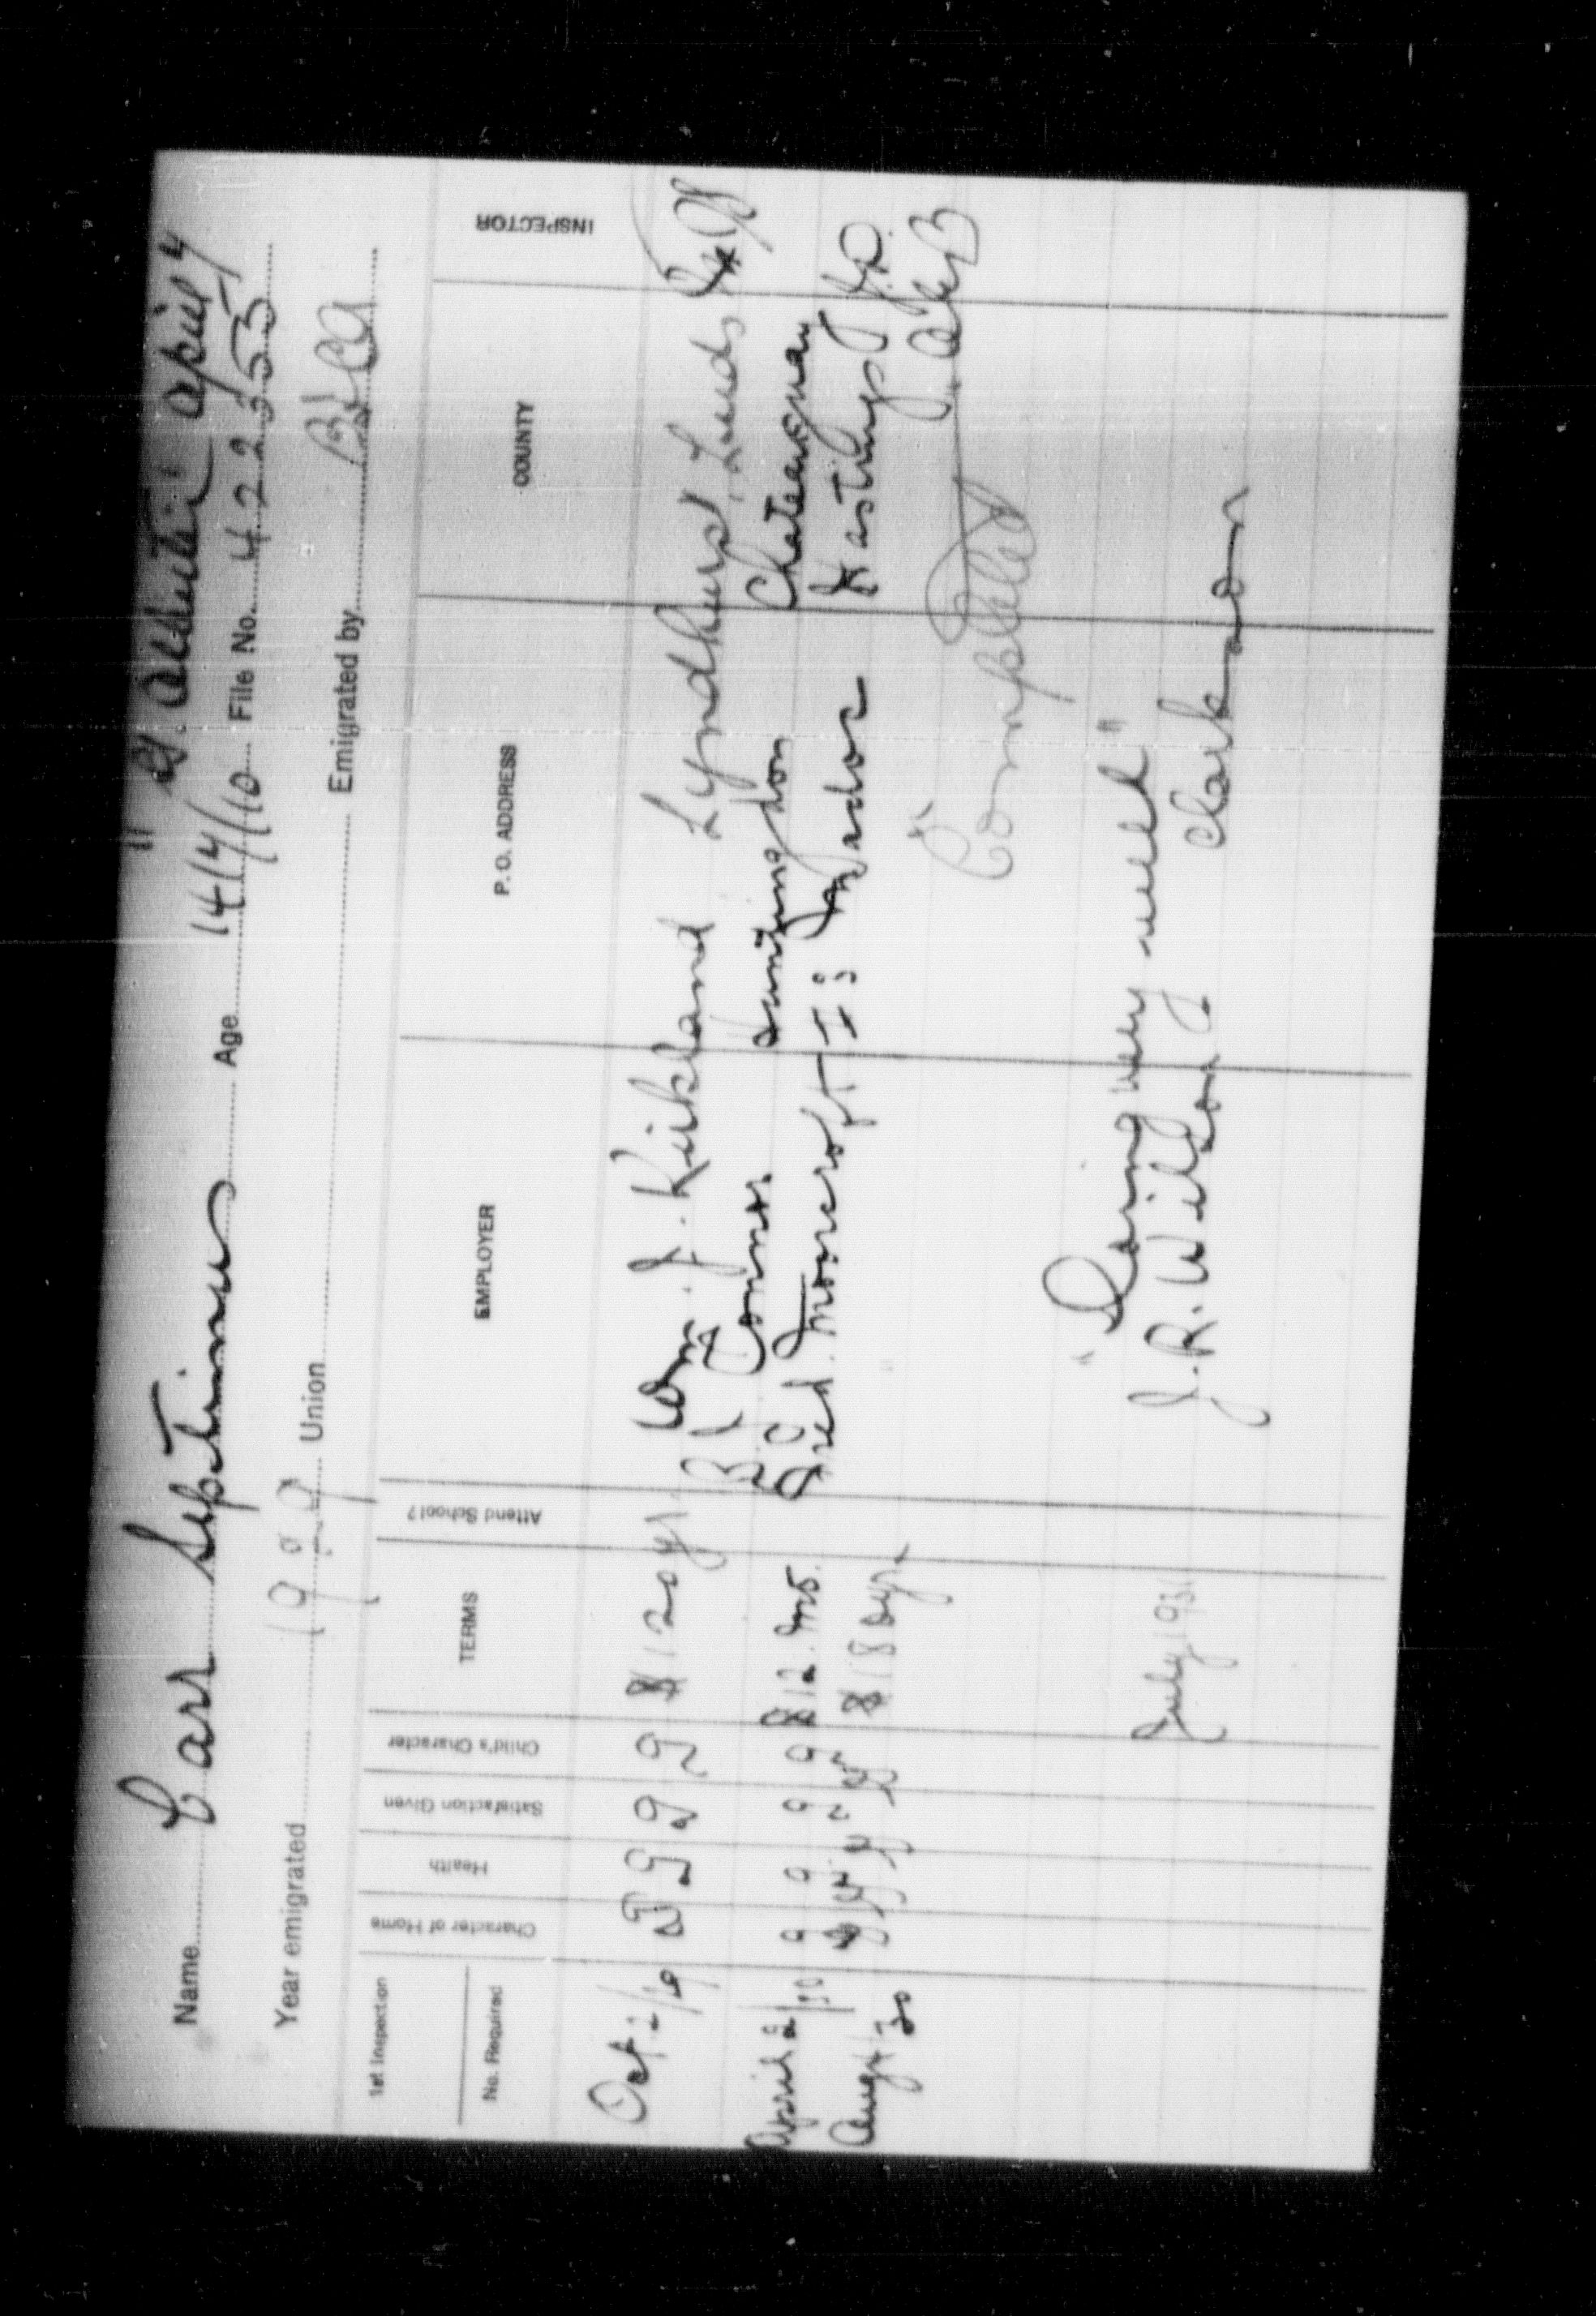 " April 4
Name Carr Septimus Age 14 File No. 422355
Year emigrated 1929 Union Emigrated by
1st Inspection
No. Required
Character of Home
Health
Satisfaction Given
Child's Character
TERMS
Attend School?
EMPLOYER
P. O. ADDRESS
COUNTY
INSPECTOR
Oct G G G G $120 yr. Wm. J. Kirkland Lyndhurst, Leeds
April 2/30 g g g g $12. mo. Connor Huntingdon Chateauguay
Augt 30 Fred. Moorcroft Madoc Hastings
Completed
"Doing very well"
July 1931 J. R. Wilson Clarkson